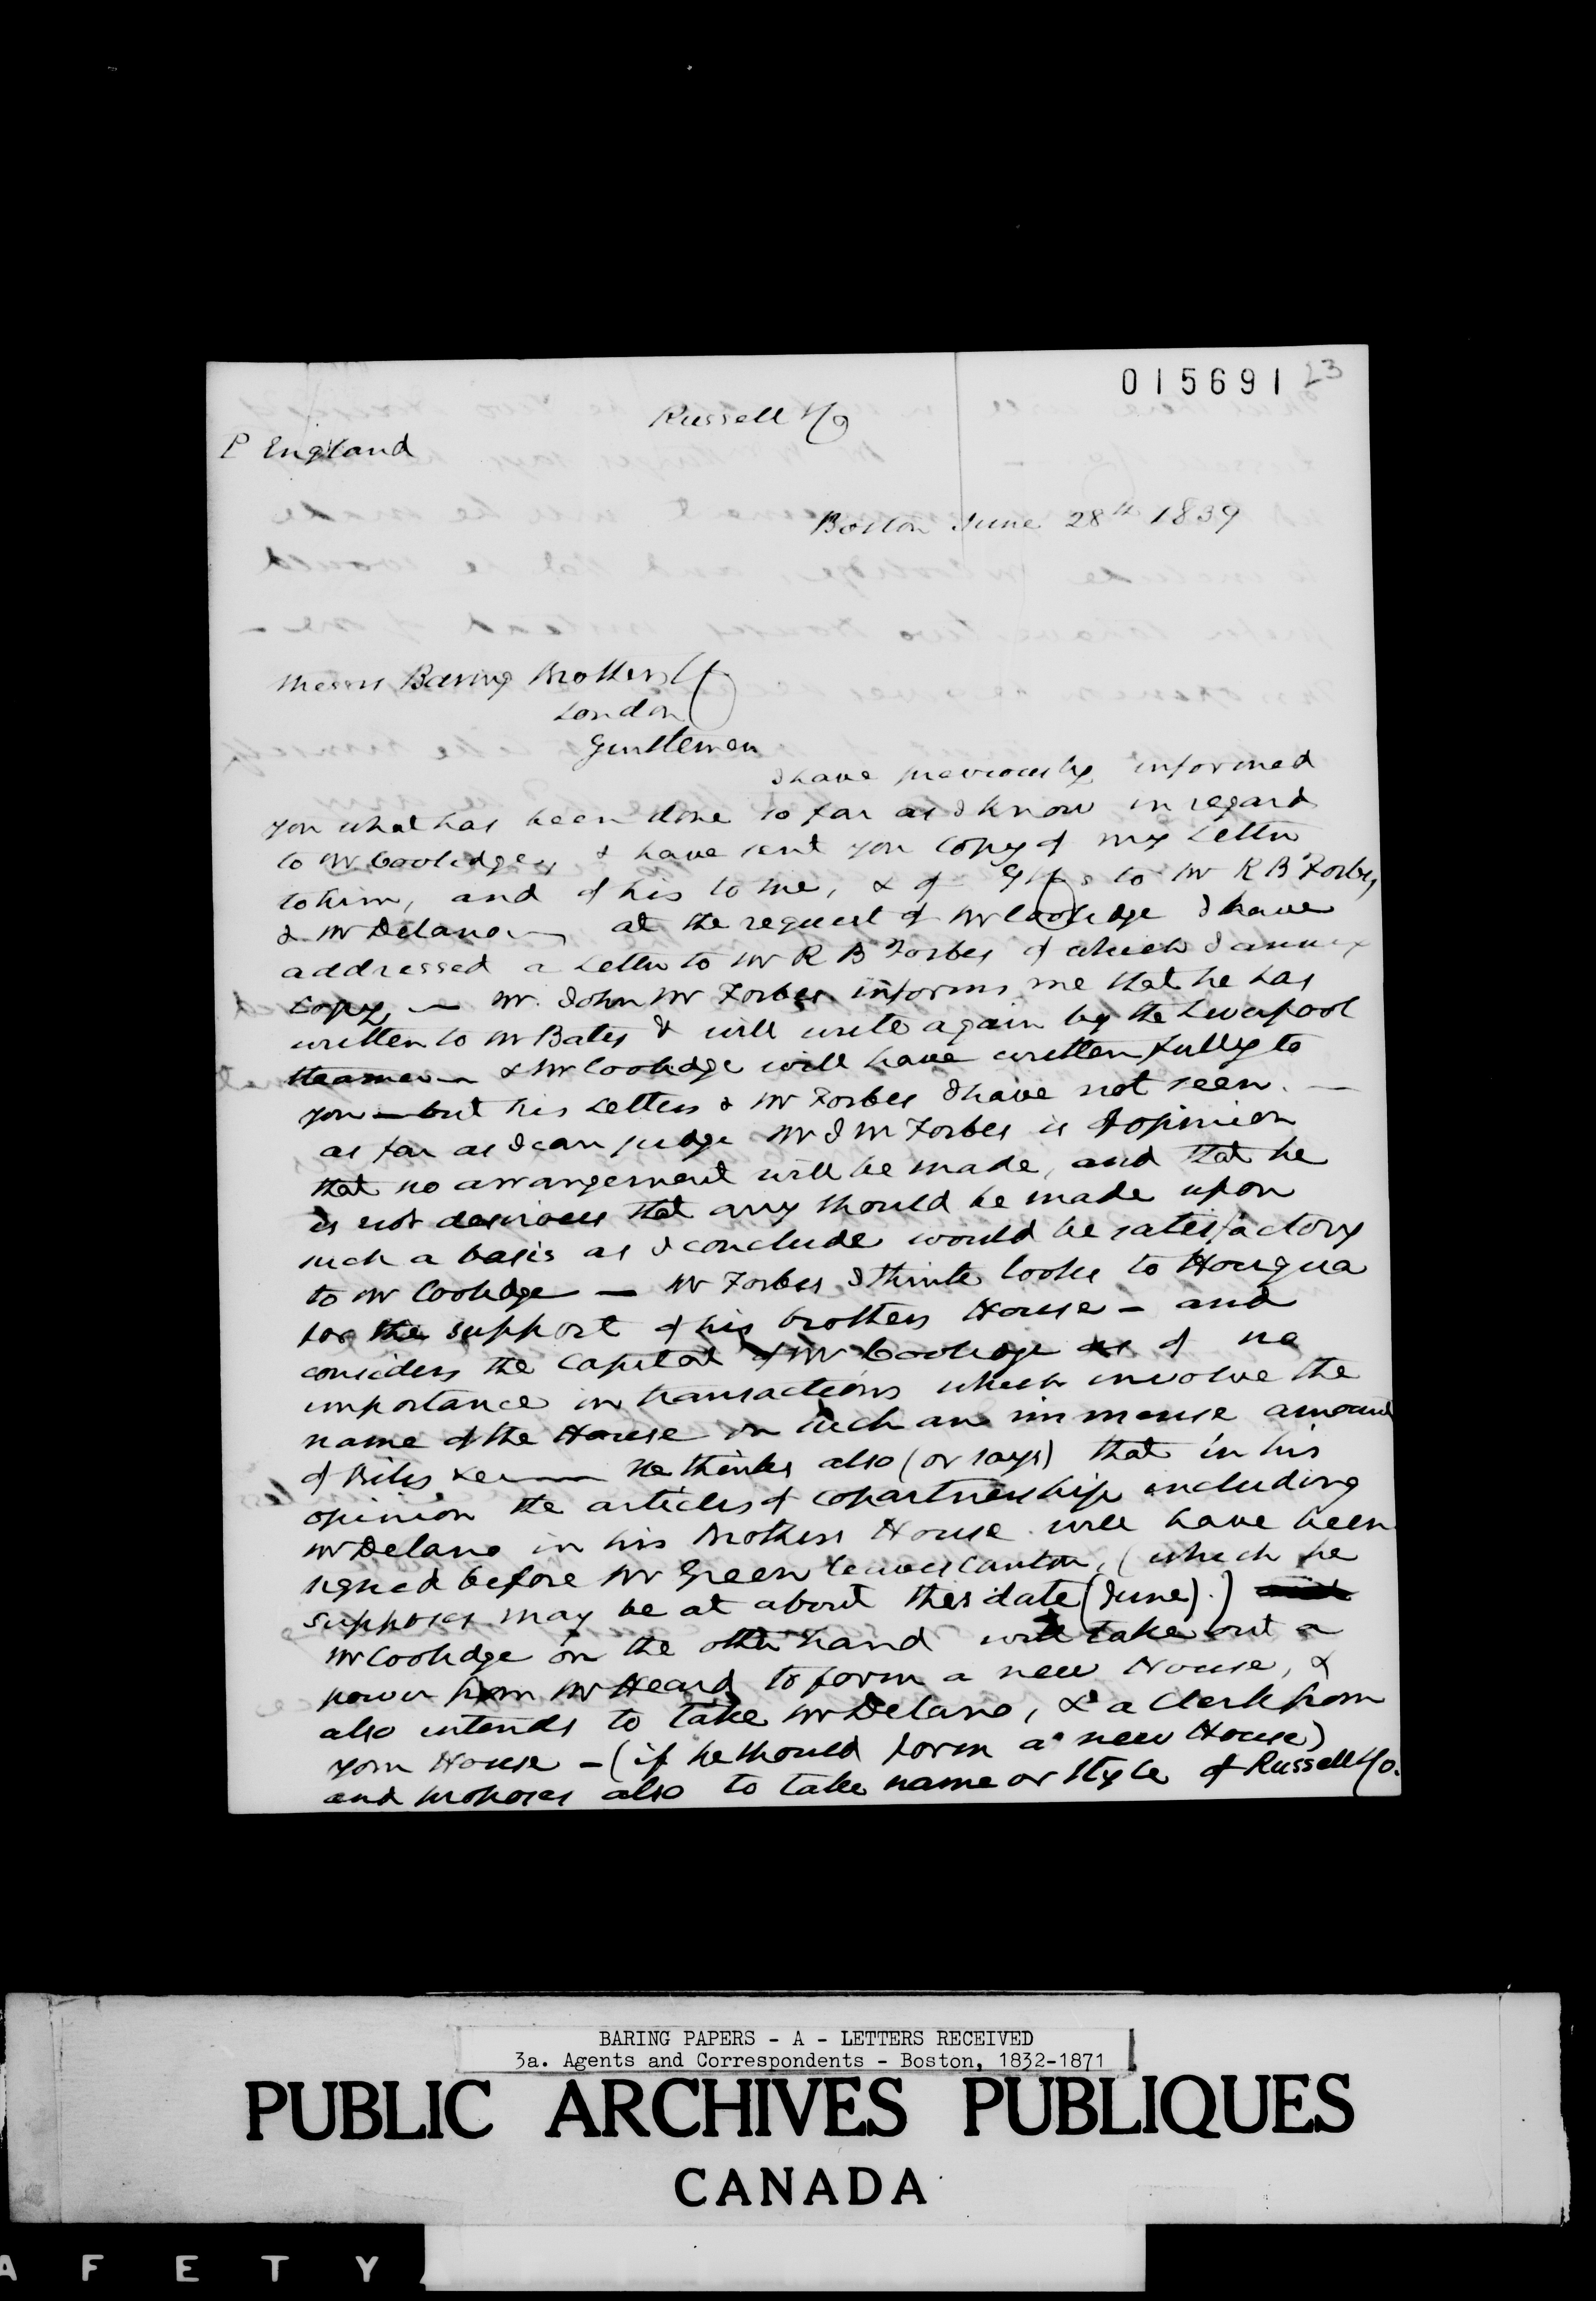 015691 23
Russell & Co
P England
Boston June 28th 1839
Messrs Baring Brothers & Co
London
Gentlemen
I have previously informed
you what has been done so far as I know in regard
to Mr Coolidge, & have sent you copy of my Letter
to him, and of his to me, & of to Mr R B Forbes
& Mr Delano — at the request of Mr Coolidge I have
addressed a Letter to Mr R B Forbes of which I annex
Copy, — Mr. John M Forbes informs me that he has
written to Mr Bates & will write again by the Liverpool
Steamer — & Mr Coolidge will have written fully to
you — but his Letters & Mr Forbes I have not seen. —
as far as I can judge Mr J M Forbes is of opinion
that no arrangement will be made, and that he
is not desirous that any should be made upon
such a basis as I conclude would be satisfactory
to Mr Coolidge — Mr Forbes I think looks to Houqua
for the support of his brothers House — and
considers the Capital of Mr Coolidge as of no
importance in transactions which involve the
name of the House in such an immense amount
of Bills &c — He thinks also (or says) that in his
opinion the articles of copartnership including
Mr Delano in his Brothers House will have been
signed before Mr Green leaves Canton, (which he
supposes may be at about this date (June).)
Mr Coolidge on the other hand will take out a
power from Mr Heard to form a new House, &
also intends to take Mr Delano, & a Clerk from
your House — (if he should form a new House)
and proposes also to take name or style of Russell & Co.
BARING PAPERS - A - LETTERS RECEIVED
3a. Agents and Correspondents - Boston, 1832-1871
PUBLIC ARCHIVES PUBLIQUES
CANADA
A F E T Y